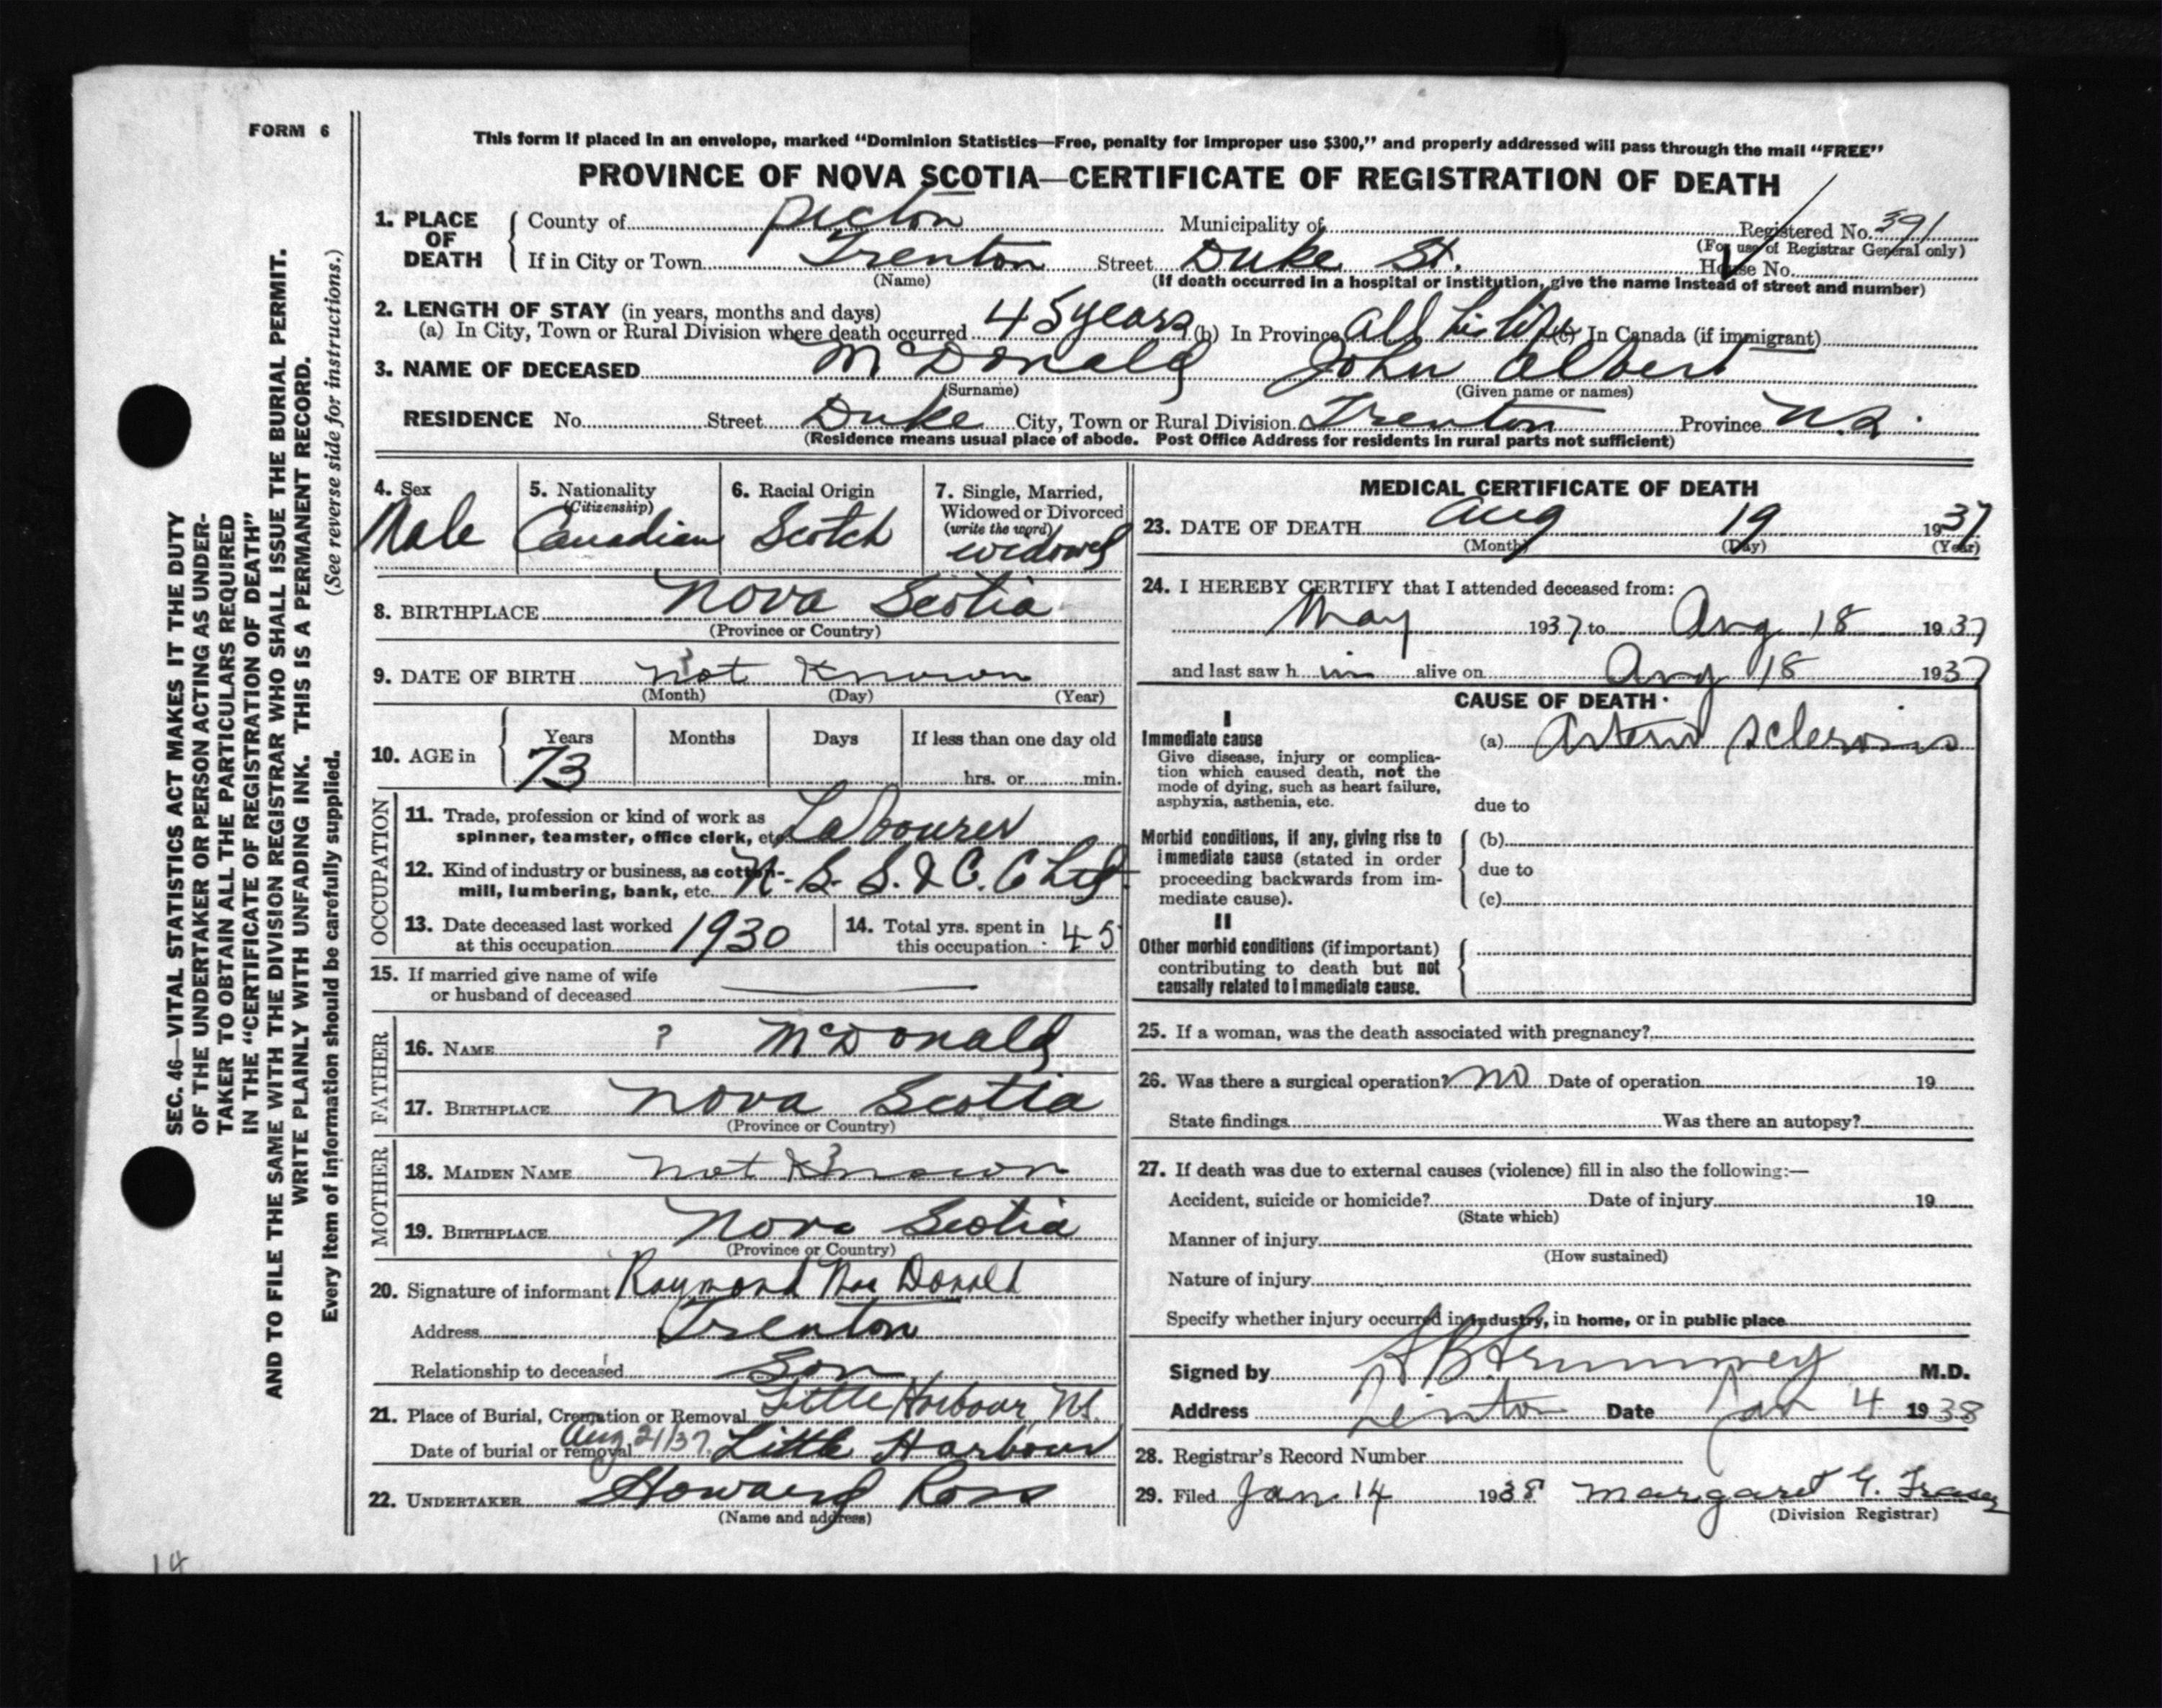 FORM 6
This form if placed in an envelope, marked "Dominion Statistics—Free, penalty for improper use $300," and properly addressed will pass through the mail "FREE"
PROVINCE OF NOVA SCOTIA—CERTIFICATE OF REGISTRATION OF DEATH
1. PLACE OF DEATH County of Pictou Municipality of Registered No. 391
(For use of Registrar General only)
If in City or Town Trenton Street Duke St. House No.
(Name) (If death occurred in a hospital or institution, give the name instead of street and number)
2. LENGTH OF STAY (in years, months and days)
(a) In City, Town or Rural Division where death occurred 45 years (b) In Province all his life (c) In Canada (if immigrant)
3. NAME OF DECEASED McDonald John Albert
(Surname) (Given name or names)
RESIDENCE No. Street Duke City, Town or Rural Division Trenton Province N.S.
(Residence means usual place of abode. Post Office Address for residents in rural parts not sufficient)
4. Sex Male
5. Nationality (Citizenship) Canadian
6. Racial Origin Scotch
7. Single, Married, Widowed or Divorced (write the word) widowed
8. BIRTHPLACE Nova Scotia
(Province or Country)
9. DATE OF BIRTH not known
(Month) (Day) (Year)
10. AGE in Years Months Days If less than one day old
73 hrs. or min.
OCCUPATION
11. Trade, profession or kind of work as
spinner, teamster, office clerk, etc. Labourer
12. Kind of industry or business, as cotton-
mill, lumbering, bank, etc. N. S. S. & C. C Ltd.
13. Date deceased last worked
at this occupation 1930
14. Total yrs. spent in
this occupation 45
15. If married give name of wife
or husband of deceased
FATHER
16. NAME ? McDonald
17. BIRTHPLACE Nova Scotia
(Province or Country)
MOTHER
18. MAIDEN NAME not known
19. BIRTHPLACE Nova Scotia
(Province or Country)
20. Signature of informant Raymond MacDonald
Address Trenton
Relationship to deceased Son
21. Place of Burial, Cremation or Removal Little Harbour NS.
Date of burial or removal Aug 21/37. Little Harbour
22. UNDERTAKER Howard Ross
(Name and address)
MEDICAL CERTIFICATE OF DEATH
23. DATE OF DEATH Aug 19 1937
(Month) (Day) (Year)
24. I HEREBY CERTIFY that I attended deceased from:
May 1937 to Aug 18 1937
and last saw h im alive on Aug 18 1937
CAUSE OF DEATH
I
Immediate cause (a) Arterio sclerosis
Give disease, injury or complica-
tion which caused death, not the
mode of dying, such as heart failure,
asphyxia, asthenia, etc. due to
Morbid conditions, if any, giving rise to (b)
immediate cause (stated in order
proceeding backwards from im- due to
mediate cause). (c)
II
Other morbid conditions (if important)
contributing to death but not
causally related to immediate cause.
25. If a woman, was the death associated with pregnancy?
26. Was there a surgical operation? no Date of operation 19
State findings Was there an autopsy?
27. If death was due to external causes (violence) fill in also the following:—
Accident, suicide or homicide? Date of injury 19
(State which)
Manner of injury
(How sustained)
Nature of injury
Specify whether injury occurred in industry, in home, or in public place
Signed by M.D.
Address Trenton Date Jan 4 1938
28. Registrar's Record Number
29. Filed Jan. 14 1938 Margaret G. Fraser
(Division Registrar)
SEC. 46—VITAL STATISTICS ACT MAKES IT THE DUTY
OF THE UNDERTAKER OR PERSON ACTING AS UNDER-
TAKER TO OBTAIN ALL THE PARTICULARS REQUIRED
IN THE "CERTIFICATE OF REGISTRATION OF DEATH"
AND TO FILE THE SAME WITH THE DIVISION REGISTRAR WHO SHALL ISSUE THE BURIAL PERMIT.
WRITE PLAINLY WITH UNFADING INK. THIS IS A PERMANENT RECORD.
Every item of information should be carefully supplied. (See reverse side for instructions.)
14